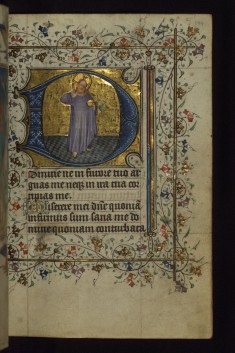 Domine ne in furore tuo ar
guas me neqz in ira tua cor
ripias me.
Miserere mei dne quoniã
infirmus sum sana me do
mine quoniam conturbata